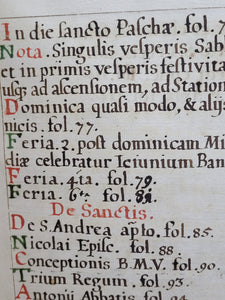 In die sancto Paschæ. fol. 7
Nota. Singulis vesperis Sab
et in primis vesperis festivita
usq; ad ascensionem, ad Station
Dominica quasi modo, & alijs
nicis. fol. 77.
Feria. 2. post dominicam Mi
diæ celebratur Ieiunium Ban
Feria. 4ta. fol. 79.
Feria. 6ta. fol. 82.
De Sanctis.
De S. Andrea apto. fol. 85.
Nicolai Episc. fol. 88.
Conceptionis B.M.V. fol. 90.
Trium Regum. fol. 93.
Antonij Abbatis. fol. 94